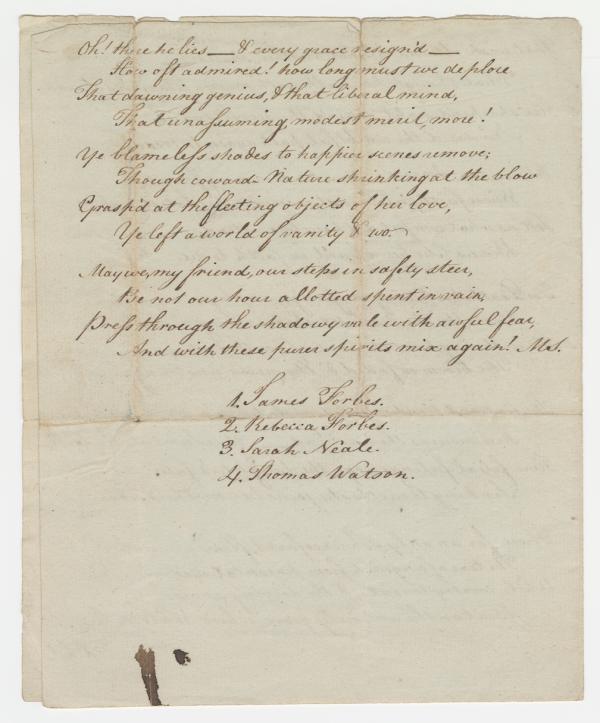 Oh! there he lies — & every grace resign'd —
How oft admired! how long must we deplore
That dawning genius, & that liberal mind,
That unassuming, modest merit, more!
Ye blameless shades to happier scenes remove;
Though coward Nature shrinking at the blow
Grasp'd at the fleeting objects of her love,
Ye left a world of vanity & wo.
May we, my friend, our steps in safety steer,
Be not our hour allotted spent in vain,
Press through the shadowy vale with awful fear,
And with these purer spirits mix again!
1. James Forbes.
2. Rebecca Forbes.
3. Sarah Neale.
4. Thomas Watson.